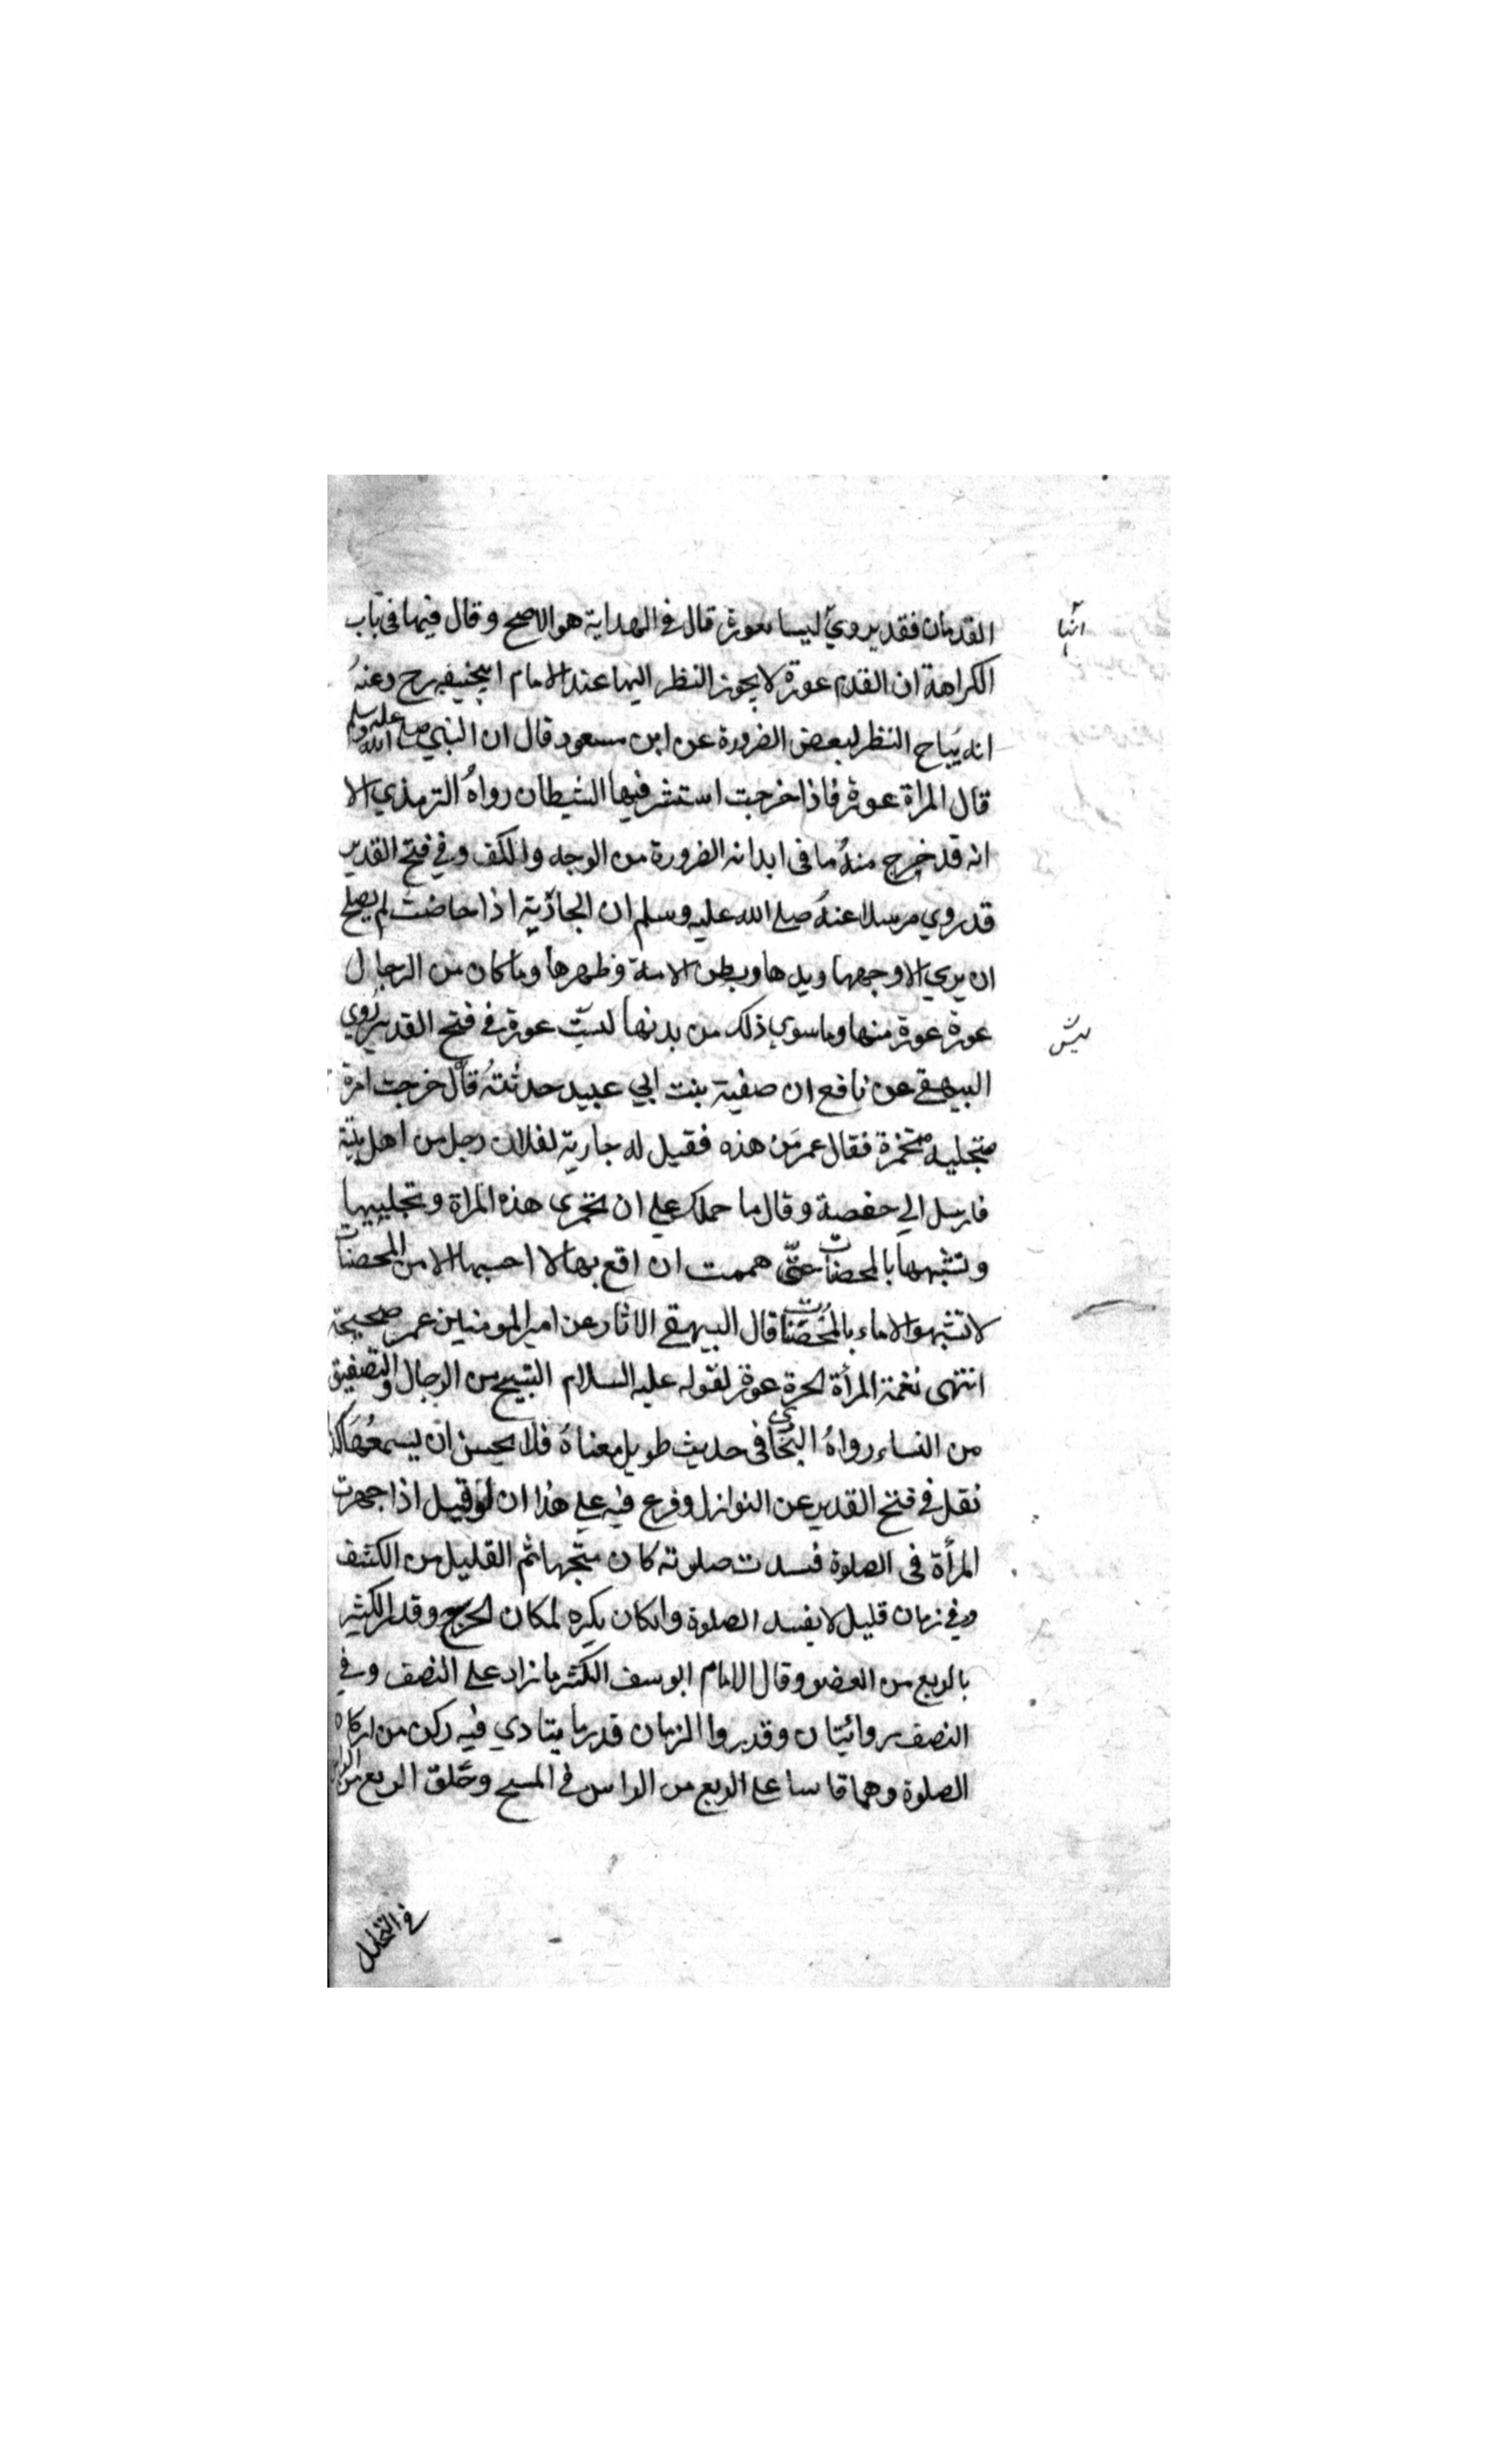 القدمان فقد يروي ليسا بعورة قال في الهداية هو الاصح وقال فيها في باب
الكراهة ان القدم عورة لا يجوز النظر اليها عند الامام ابيحنيفه رح وعنهُ
انه يباح النظر لبعض الضرورة عن ابن مسعود قال ان النبي صلى الله عليه وسلم
قال المراة عورة فاذا خرجت استشرفيها الشيطان رواهُ الترمذي الا
انه قد خرج منهُ ما في ابدانه الضرورة من الوجه والكف وفي فتح القدير
قد روي مرسلا عنهُ صلى الله عليه وسلم ان الجارية اذا حاضت لم يصلح
ان يري الا وجهها ويدها وبطن الامة وظهرها وما كان من الرجال
عورة عورة منها وما سوي ذلك من بدنها ليست عورة في فتح القدير روي
البيهقي عن نافع ان صفية بنت ابي عبيد حدثتهُ قال خرجت امرة
متجلببة متخمرة فقال عمر من هذه فقيل له جارية لفلان رجل من اهل بيته
فارسل الي حفصة وقال ما حملك علي ان تخمري هذه المراة وتجلببيها
وتشبهها بالمحصنات حتّي هممت ان اقع بها لا احسبها الا من المحصنات
لا تشبهوا الاماء بالمحصنات قال البيهقي الاثار عن امير المومنين عمر صحيحة
انتهى نغمة المرأة الحرة عورة لقوله عليه السلام التسبيح من الرجال والتصفيق
من النساء رواهُ البخاري في حديث طويل معناهُ فلا يحسن ان يسمعها كذا
نقل في فتح القدير عن النوازل وفرع فيه علي هذا ان لو قيل اذا جهرت
المرأة في الصلوة فسدت صلوته كان متجها ثم القليل من الكشف
وفي زمان قليل لا يفسد الصلوة وانكان يكره لمكان الحرج وقدر الكثير
بالربع من العضو وقال الامام ابو سف الكثير ما زاد علي النصف وفي
النصف روائيتان وقدروا الزمان قدر ما يتادي فيه ركن من اركان
الصلوة وهما قاسا علي الربع من الراس في المسح وحَلق الربع من
في التحليل